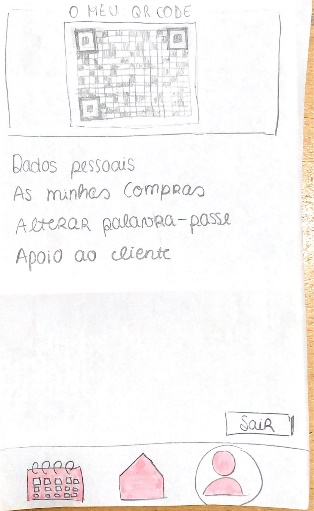 O MEU QR CODE
Dados pessoais
As minhas compras
Alterar palavra-passe
Apoio ao cliente
SAIR